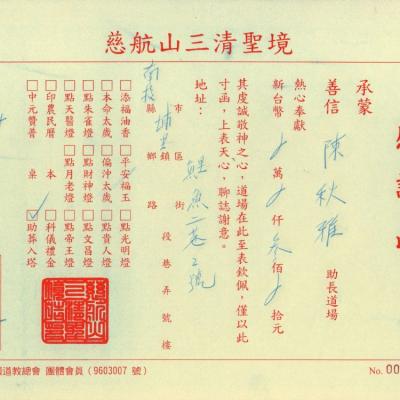 慈航山三清聖境
承蒙
善信 陳秋雅 助長道場
熱心奉獻
新台幣 萬 仟 叁 佰 拾元
其虔誠敬神之心，道場在此至表欽佩，僅以此
寸函，上表天心，聊誌謝意。
地址：
南投 縣市 埔里 鄉鎮區 鯉魚二巷2號 路街 段 巷 弄 號 樓
□添福油香 □平安福玉 □點光明燈
□本命太歲 □偏沖太歲 □點貴人燈
□點朱雀燈 □點財神燈 □點文昌燈
□點天醫燈 □點月老燈 □點帝王燈
□印農民曆 □科儀禮金
□中元贊普 桌 本 ☑助葬入塔
道教總會 團體會員（9603007 號）
No. 00